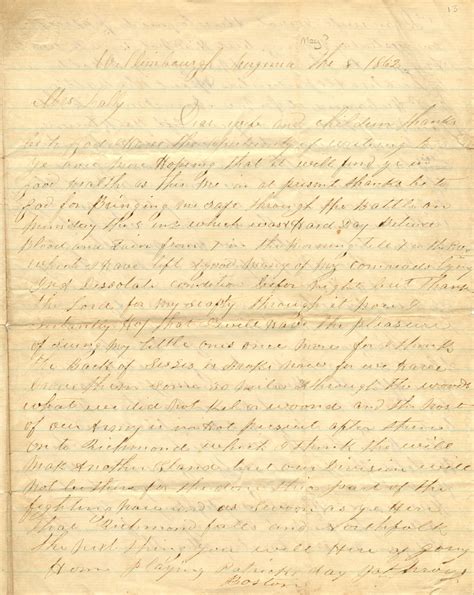 15
May?
Williamsburgh Virginia the 8 1862
Mrs Daly
Dear wife and children thanks
be to god I have the opportunity of writing to
ye once more Hoping that it will find ye in
good health as this leaves me at present thanks be to
God for Bringing me safe through the Battle on
which was a Hard Day between
Blood and rain from 7 in the morning till 7 in the
where I have left a good many of my comrads
And Dissolate condition before Night But thank
the Lord for my safty through it now I
certainly Hop that I will have the pleasure
of Seing my little ones once more for I think
The Back of Secess is broke now for we have
Drove them some 20 miles through the woods
what we did Not Kil or woond and the most
of our Army is at present after them
on to Richmond which I think the will
Mak Another Stand but our Division will
not be there for the done their part of the
fighting and as Soon as ye Hear
that Richmond falls and Northfolk
The next thing you will Hear is gory
Home playing Patricks day
Boston